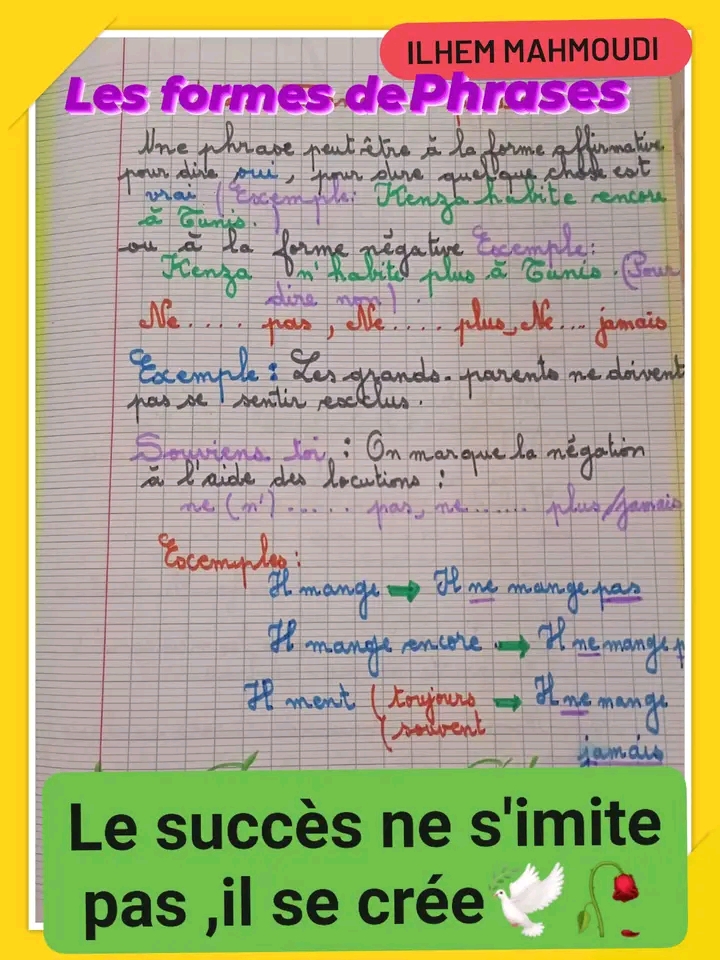 ILHEM MAHMOUDI
Les formes de Phrases
Une phrase peut être à la forme affirmative
pour dire oui, pour dire quelque chose est
vrai (Exemple: Kenza habite encore
à Tunis.
ou à la forme négative Exemple:
Kenza n'habite plus à Tunis. (Pour
dire non).
Ne..... pas, Ne.... plus, Ne... jamais
Exemple: Les grands-parents ne doivent
pas se sentir exclus.
Souviens toi : On marque la négation
à l'aide des locutions :
ne (n')..... pas, ne...... plus/jamais
Exemples:
Il mange → Il ne mange pas
Il mange encore → Il ne mange p
Il ment (toujours → Il ne mange
(souvent
jamais
Le succès ne s'imite
pas ,il se crée